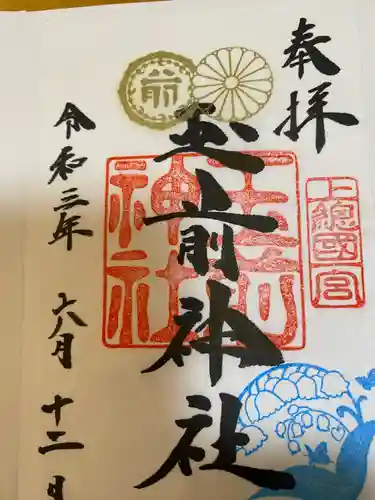 奉拝
前
上總國一宮
玉前神社
玉前神社
令和三年
六月
十二日